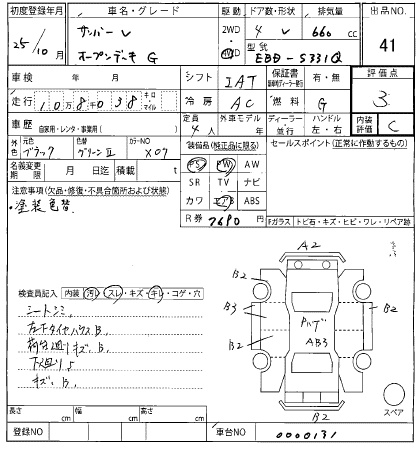 初度登録年月 車名・グレード 駆動 ドア数・形状 排気量 出品NO.
25/10月 サンバー V オープンデッキ G 2WD 4WD 4 V 660 cc 41
型式 EBD-S331Q
車検 年 月 シフト IAT 保証書 有・無 評価点
走行 10万8千038 キロ マイル 冷房 AC 燃料 G 3
車歴 自家用・レンタ・事業用( ) 定員 4人 外車モデル 年 ディーラー 並行 ハンドル 左・右 内装評価 C
外色 ブラック 色替 グリーンII カラーNO X07
装備品(純正品に限る) セールスポイント(正常に作動するもの)
名義変更期限 月 日迄 積載量 t
PS PW AW
SR TV ナビ
カワ エアB ABS
R券 7690 円
注意事項(欠品・修復・不具合箇所および状態)
・塗装色替
Fガラス トビ石・キズ・ヒビ・ワレ・リペア跡
検査員記入 内装 汚レ・スレ・キズ・キレ・コゲ・穴
シートシミ
左右タイヤハウスB、
荷台廻りキズ、B
下廻りS
キズ、B
A2
B2
B3
B2
B2
B2
B2
AB3
スペア
長さ cm 幅 cm 高さ cm
登録NO 車台NO 0000131